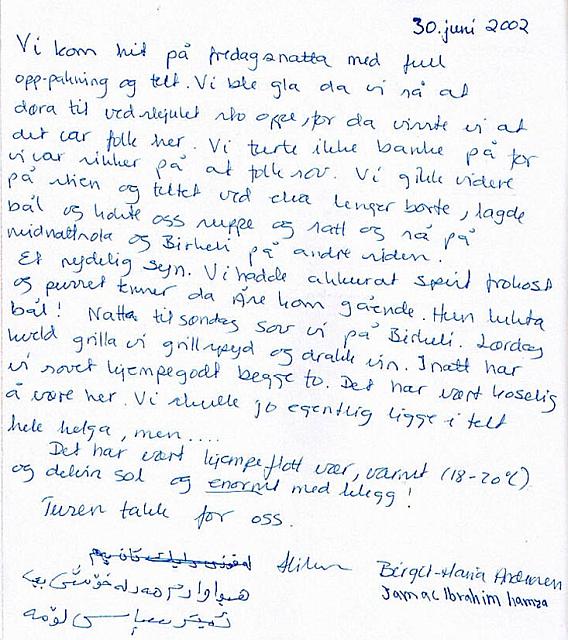 30. juni 2002
Vi kom hit på fredagsnatta med full
opp-pakning og telt. Vi ble gla da vi så at
døra til vedskjulet sto oppe, for da visste vi at
det var folk her. Vi turte ikke banke på for
vi var sikker på at folk sov. Vi gikk videre
på stien og teltet ved elva lenger borte, lagde
bål og kokte oss suppe og satt og så på
midnattsola og Birkeli på andre siden.
Et nydelig syn. Vi hadde akkurat spist frokost
og pusset tenner da Åre kom gående. Hun lukta
bål! Natta til søndag sov vi på Birkeli. Lørdag
kveld grilla vi grillspyd og drakk vin. I natt har
vi sovet kjempegodt begge to. Det har vært koselig
å være her. Vi skulle jo egentlig ligge i telt
hele helga, men....
Det har vært kjempeflott vær, varmt (18-20°C)
og delvis sol og enormt med klegg!
Turen takk for oss.
Birgit-Maria
Jamac Ibrahim hamza